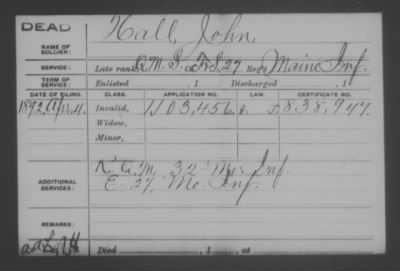 DEAD
Hall, John
NAME OF SOLDIER:
SERVICE: Late rank, Q.M.S. Co. F.&S. 27 Reg't Maine Inf.
TERM OF SERVICE: Enlisted , 1 Discharged , 1
DATE OF FILING. CLASS. APPLICATION NO. LAW. CERTIFICATE NO.
1892, Apr. 4. Invalid, 1,103,456 838,947.
Widow,
Minor,
ADDITIONAL SERVICES: 32 Me. Inf.
E. 27, Me. Inf.
REMARKS:
Died , 1 , at